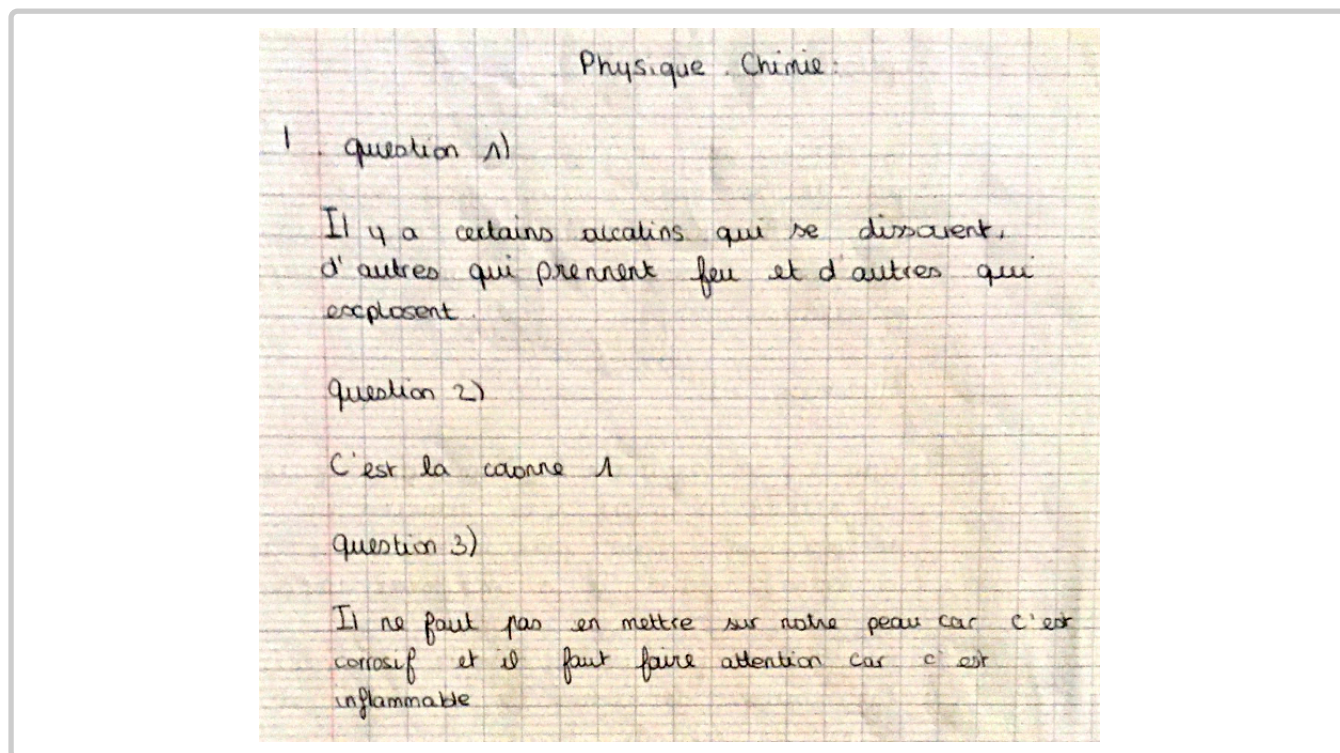 Physique Chimie :
1 question 1)
Il y a certains alcalins qui se dissolvent,
d'autres qui prennent feu et d'autres qui
explosent.
question 2)
C'est la colonne 1
question 3)
Il ne faut pas en mettre sur notre peau car c'est
corrosif et il faut faire attention car c'est
inflammable